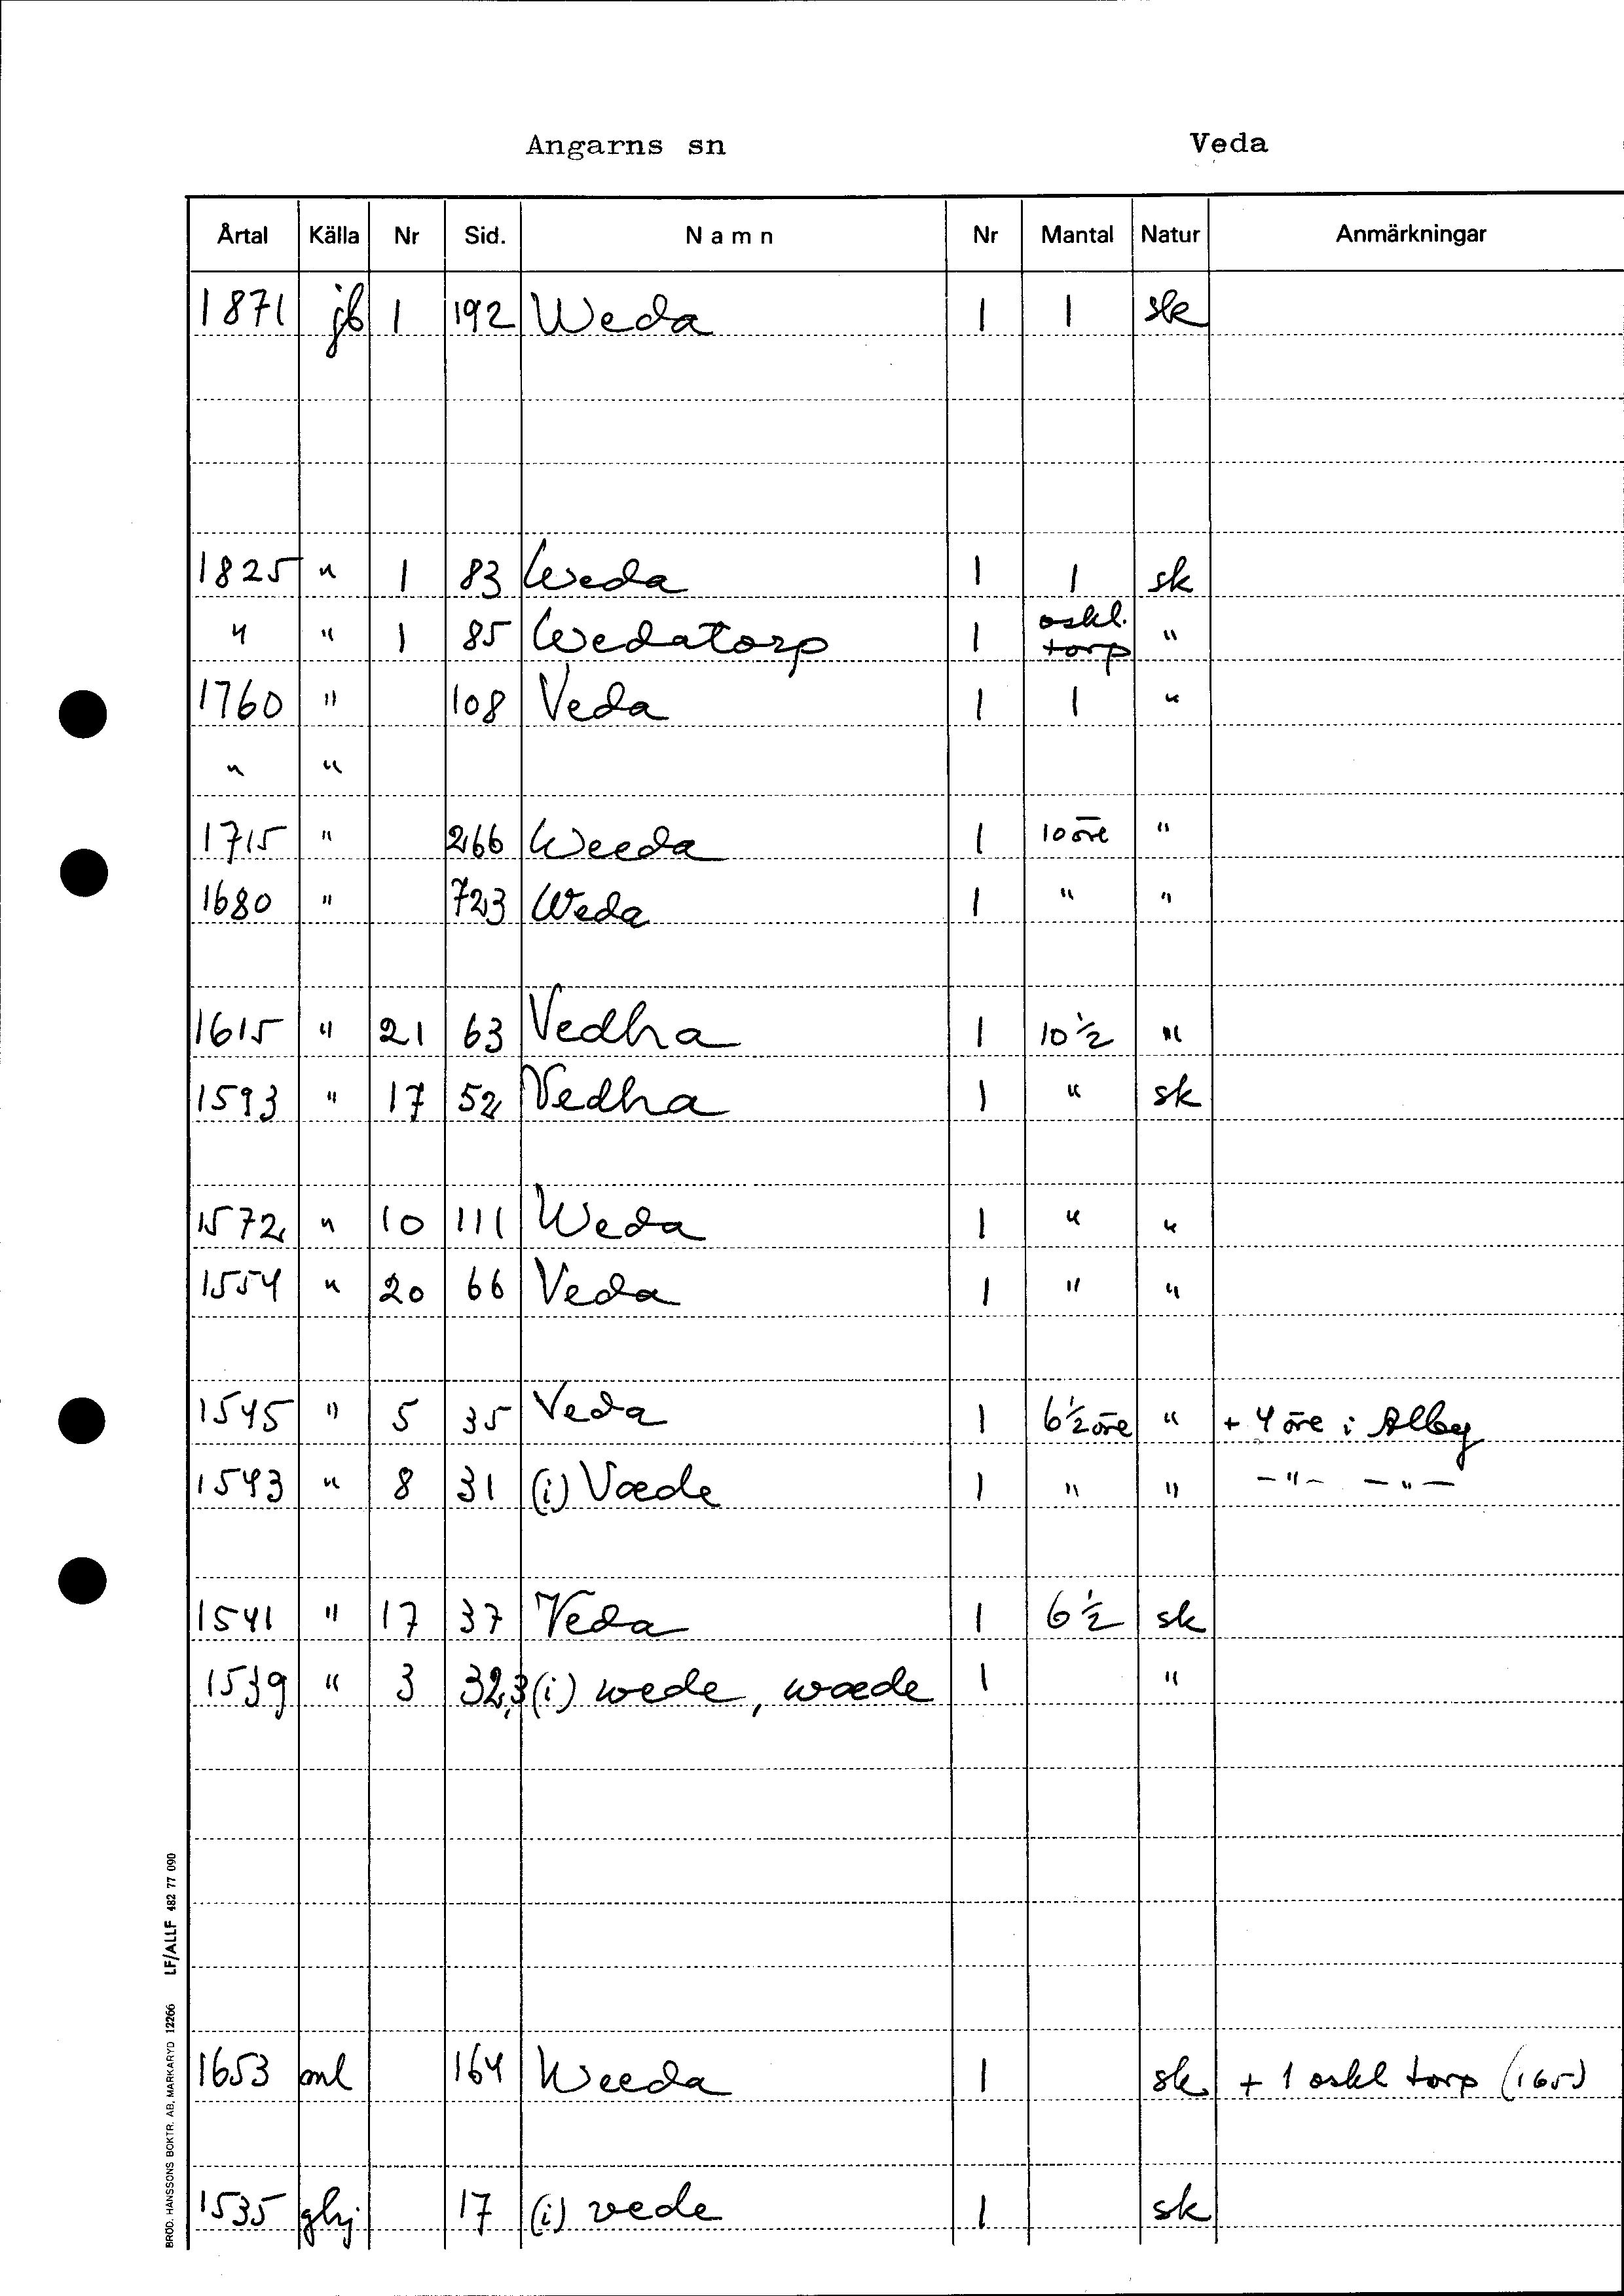 Angarns sn Veda
Årtal Källa Nr Sid. Namn Nr Mantal Natur Anmärkningar
1871 jb 1 192 Weda 1 1 sk
1825 " 1 83 Weda 1 1 sk
" " 1 85 Wedatorp 1 oskl. torp "
1760 " 108 Veda 1 1 "
" "
1715 " 266 Weeda 1 10 öre "
1680 " 723 Weda 1 " "
1615 " 21 63 Vedha 1 10 1/2 "
1593 " 17 52 Vedha 1 " sk
1572 " 10 111 Weda 1 " "
1554 " 20 66 Veda 1 " "
1545 " 5 35 Veda 1 6 1/2 öre " + 4 öre i Alby
1543 " 8 31 (i) Væde 1 " " -"- -"-
1541 " 17 37 Veda 1 6 1/2 sk
1539 " 3 32,3 (i) wede, wæde 1 "
1653 ml 164 Weeda 1 sk + 1 oskl torp (165)
1535 ghj 17 (i) vede 1 sk
BRÖD. HANSSONS BOKTR. AB, MARKARYD 12266 LF/ALLF 482 77 090